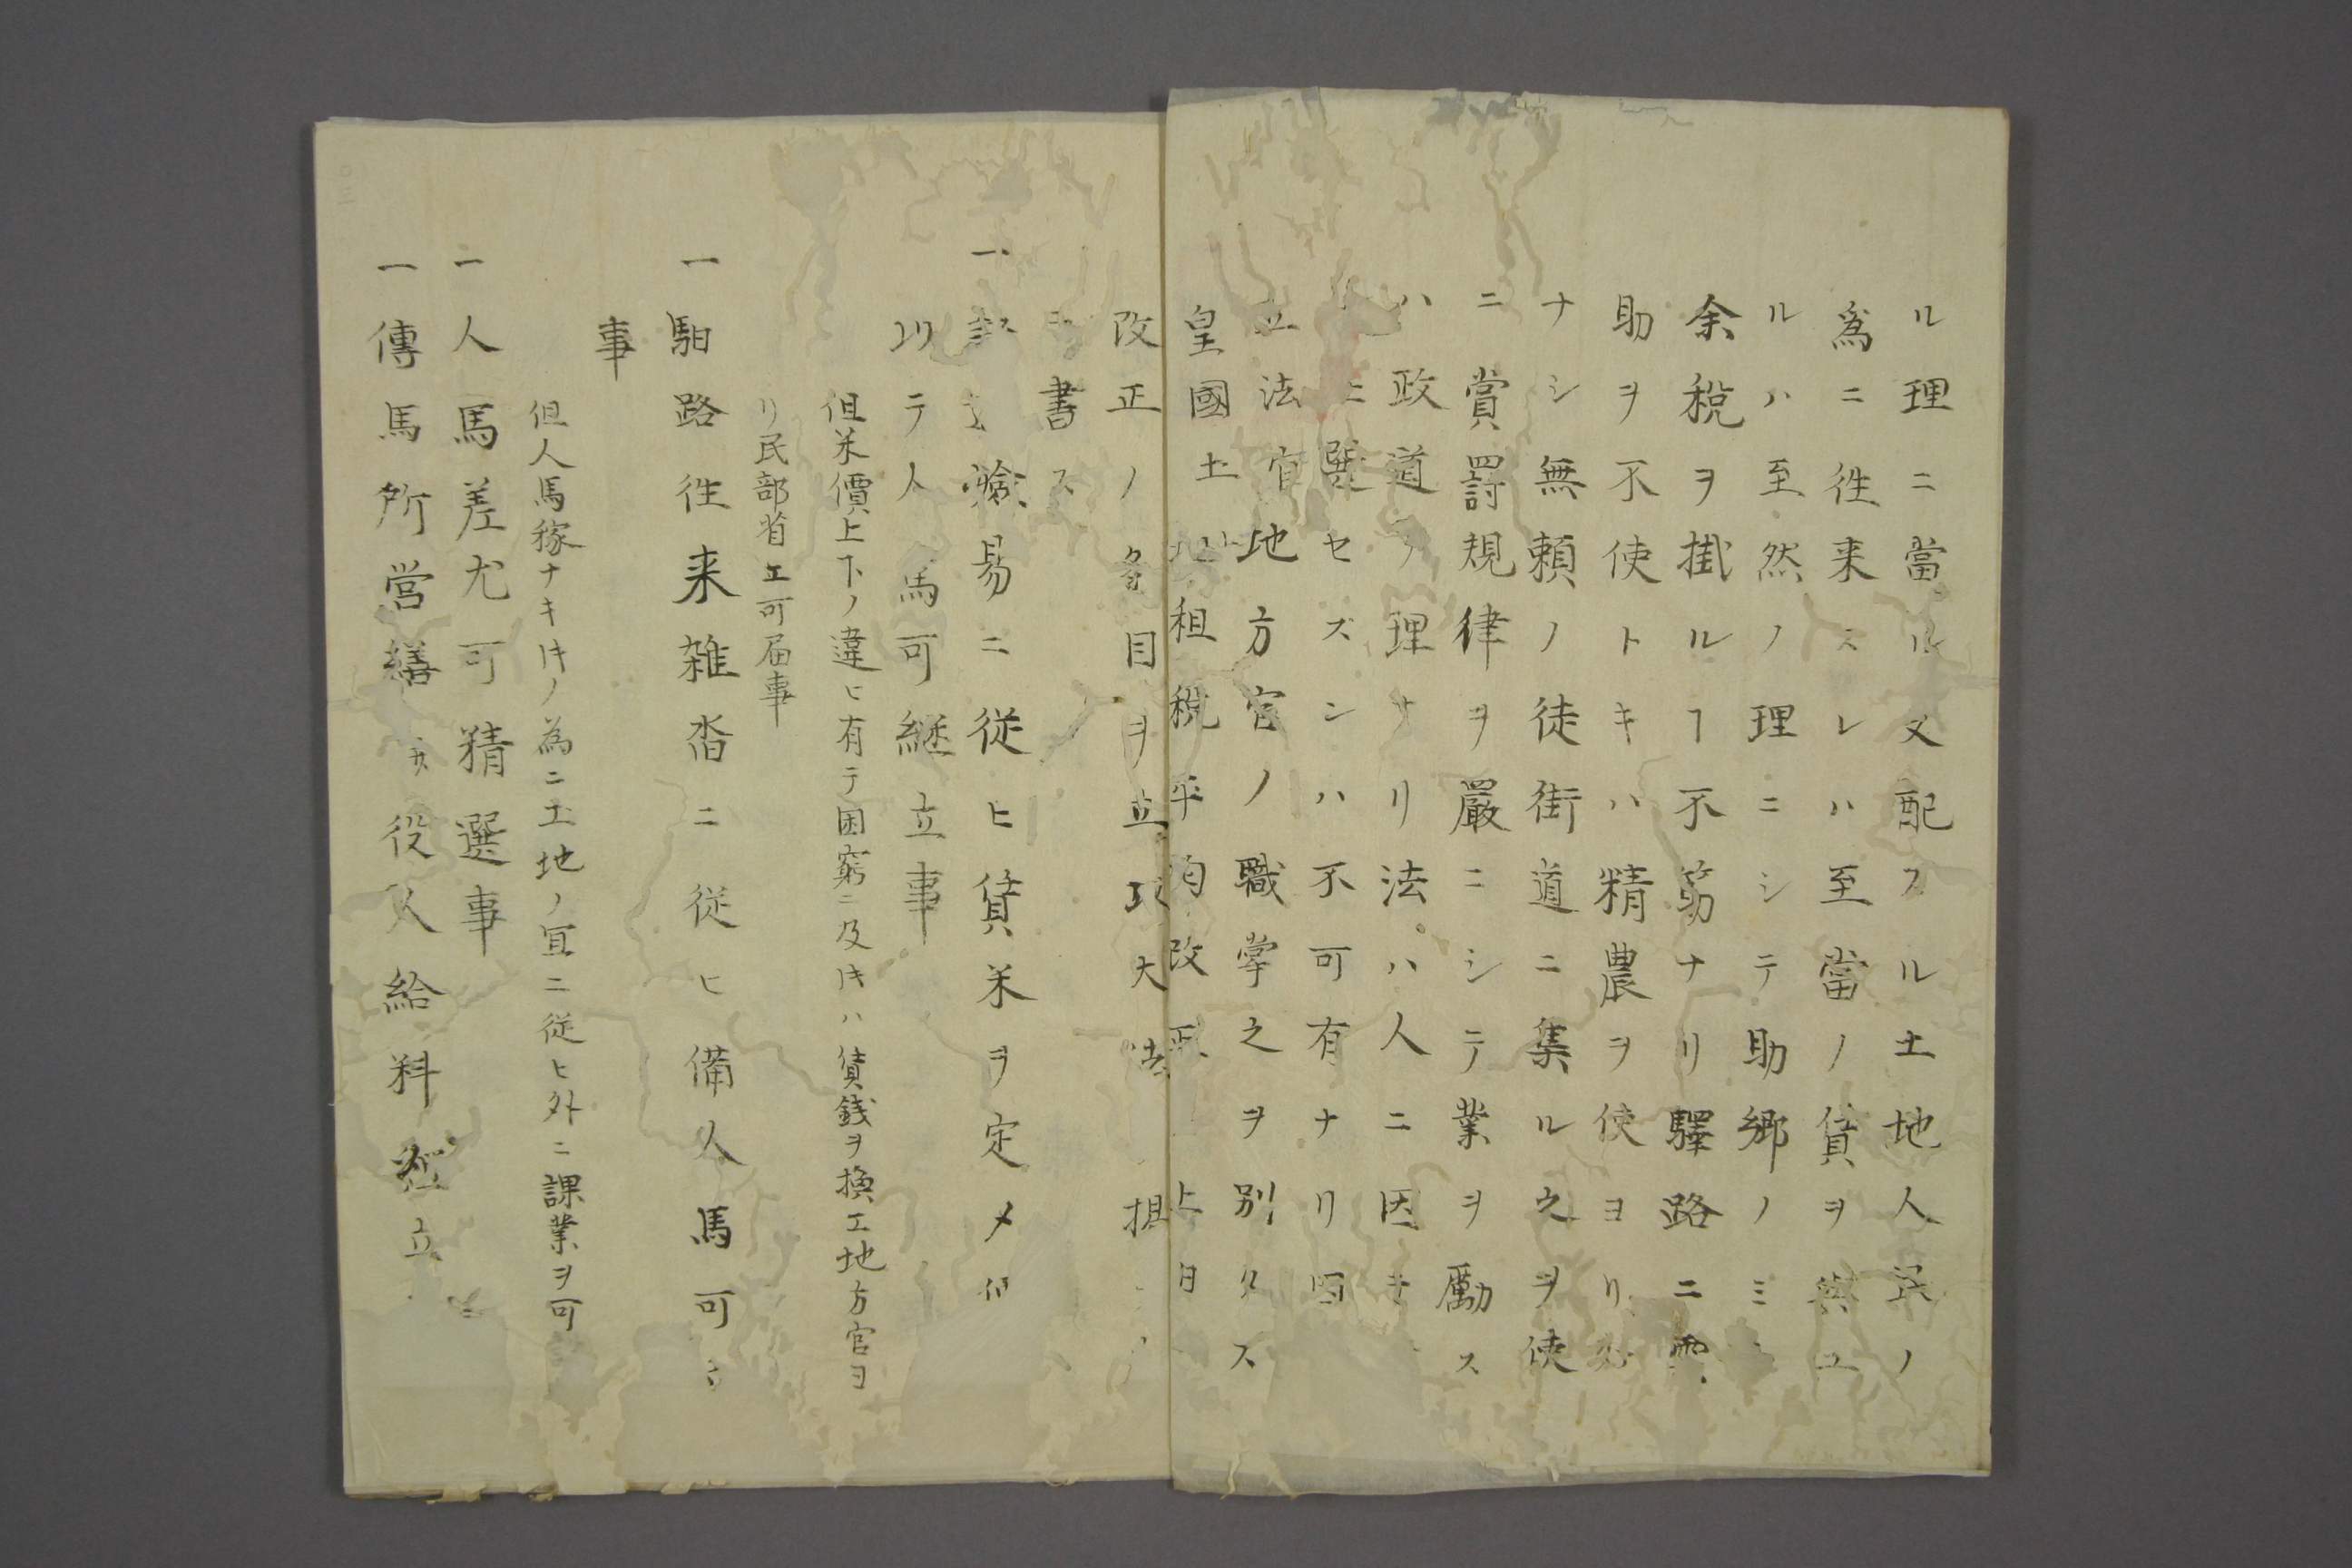 ル理ニ當ル又配スル土地人民ノ
爲ニ徃来スレハ至當ノ賃ヲ與ユ
ルハ至然ノ理ニシテ助郷ノミ
余税ヲ掛ルヿ不筋ナリ驛路ニ
助ヲ不使トキハ精農ヲ使ヨリ
ナシ無頼ノ徒街道ニ集ル之ヲ使
ニ賞罸規律ヲ嚴ニシテ業ヲ勵ス
ハ政道ノ理ナリ法ハ人ニ因
ニ選セズンハ不可有ナリ因
立法官地方官ノ職掌之ヲ別タス
皇國土地租税平均改正
改正ノ条目ヲ立
書ス
一 驗易ニ従ヒ賃米ヲ定メ
以テ人馬可継立事
但米價上下ノ違ヒ有テ困窮ニ及ドキハ賃銭ヲ換エ地方官ヨ
リ民部省エ可届事
一駅路徃来雑沓ニ従ヒ備人馬可
事
但人馬稼ナキドキノ為ニ土地ノ宜ニ従ヒ外ニ課業ヲ可
一人馬差尤可精選事
一傳馬所営繕並役人給料